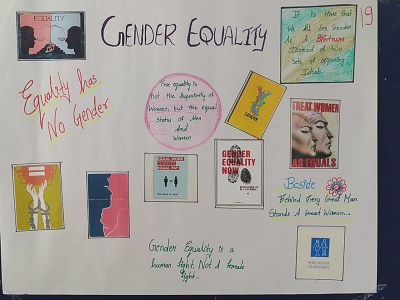 EQUALITY
GENDER EQUALITY
19
It Is Time that
We All See Gender
As A Spectrum
Instead of two
Sets of opposing
Ideals.
Equality has
No Gender
True equality is
Not the Superiority of
Women, but the equal
Status of Men
And
Women
GENDER
TREAT WOMEN
AS EQUALS
EQUAL WORK
EQUAL PAY
GENDER
EQUALITY
NOW
Beside
Behind Every Great Man
Stands A Great Women...
Gender Equality is a
human fight. Not A female
fight...